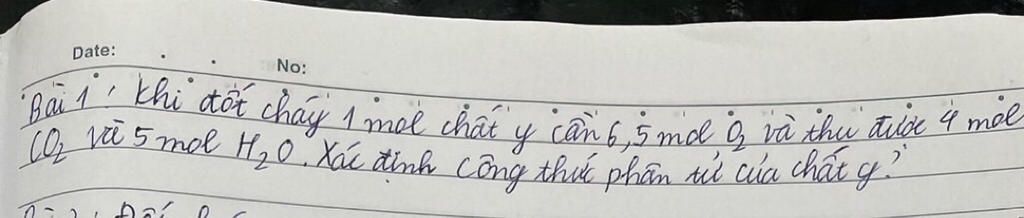 Date:
No:
Bài 1: Khi đốt cháy 1 mol chất y cần 6,5 mol O2 và thu được 4 mol
CO2 và 5 mol H2O. Xác định công thức phân tử của chất y?